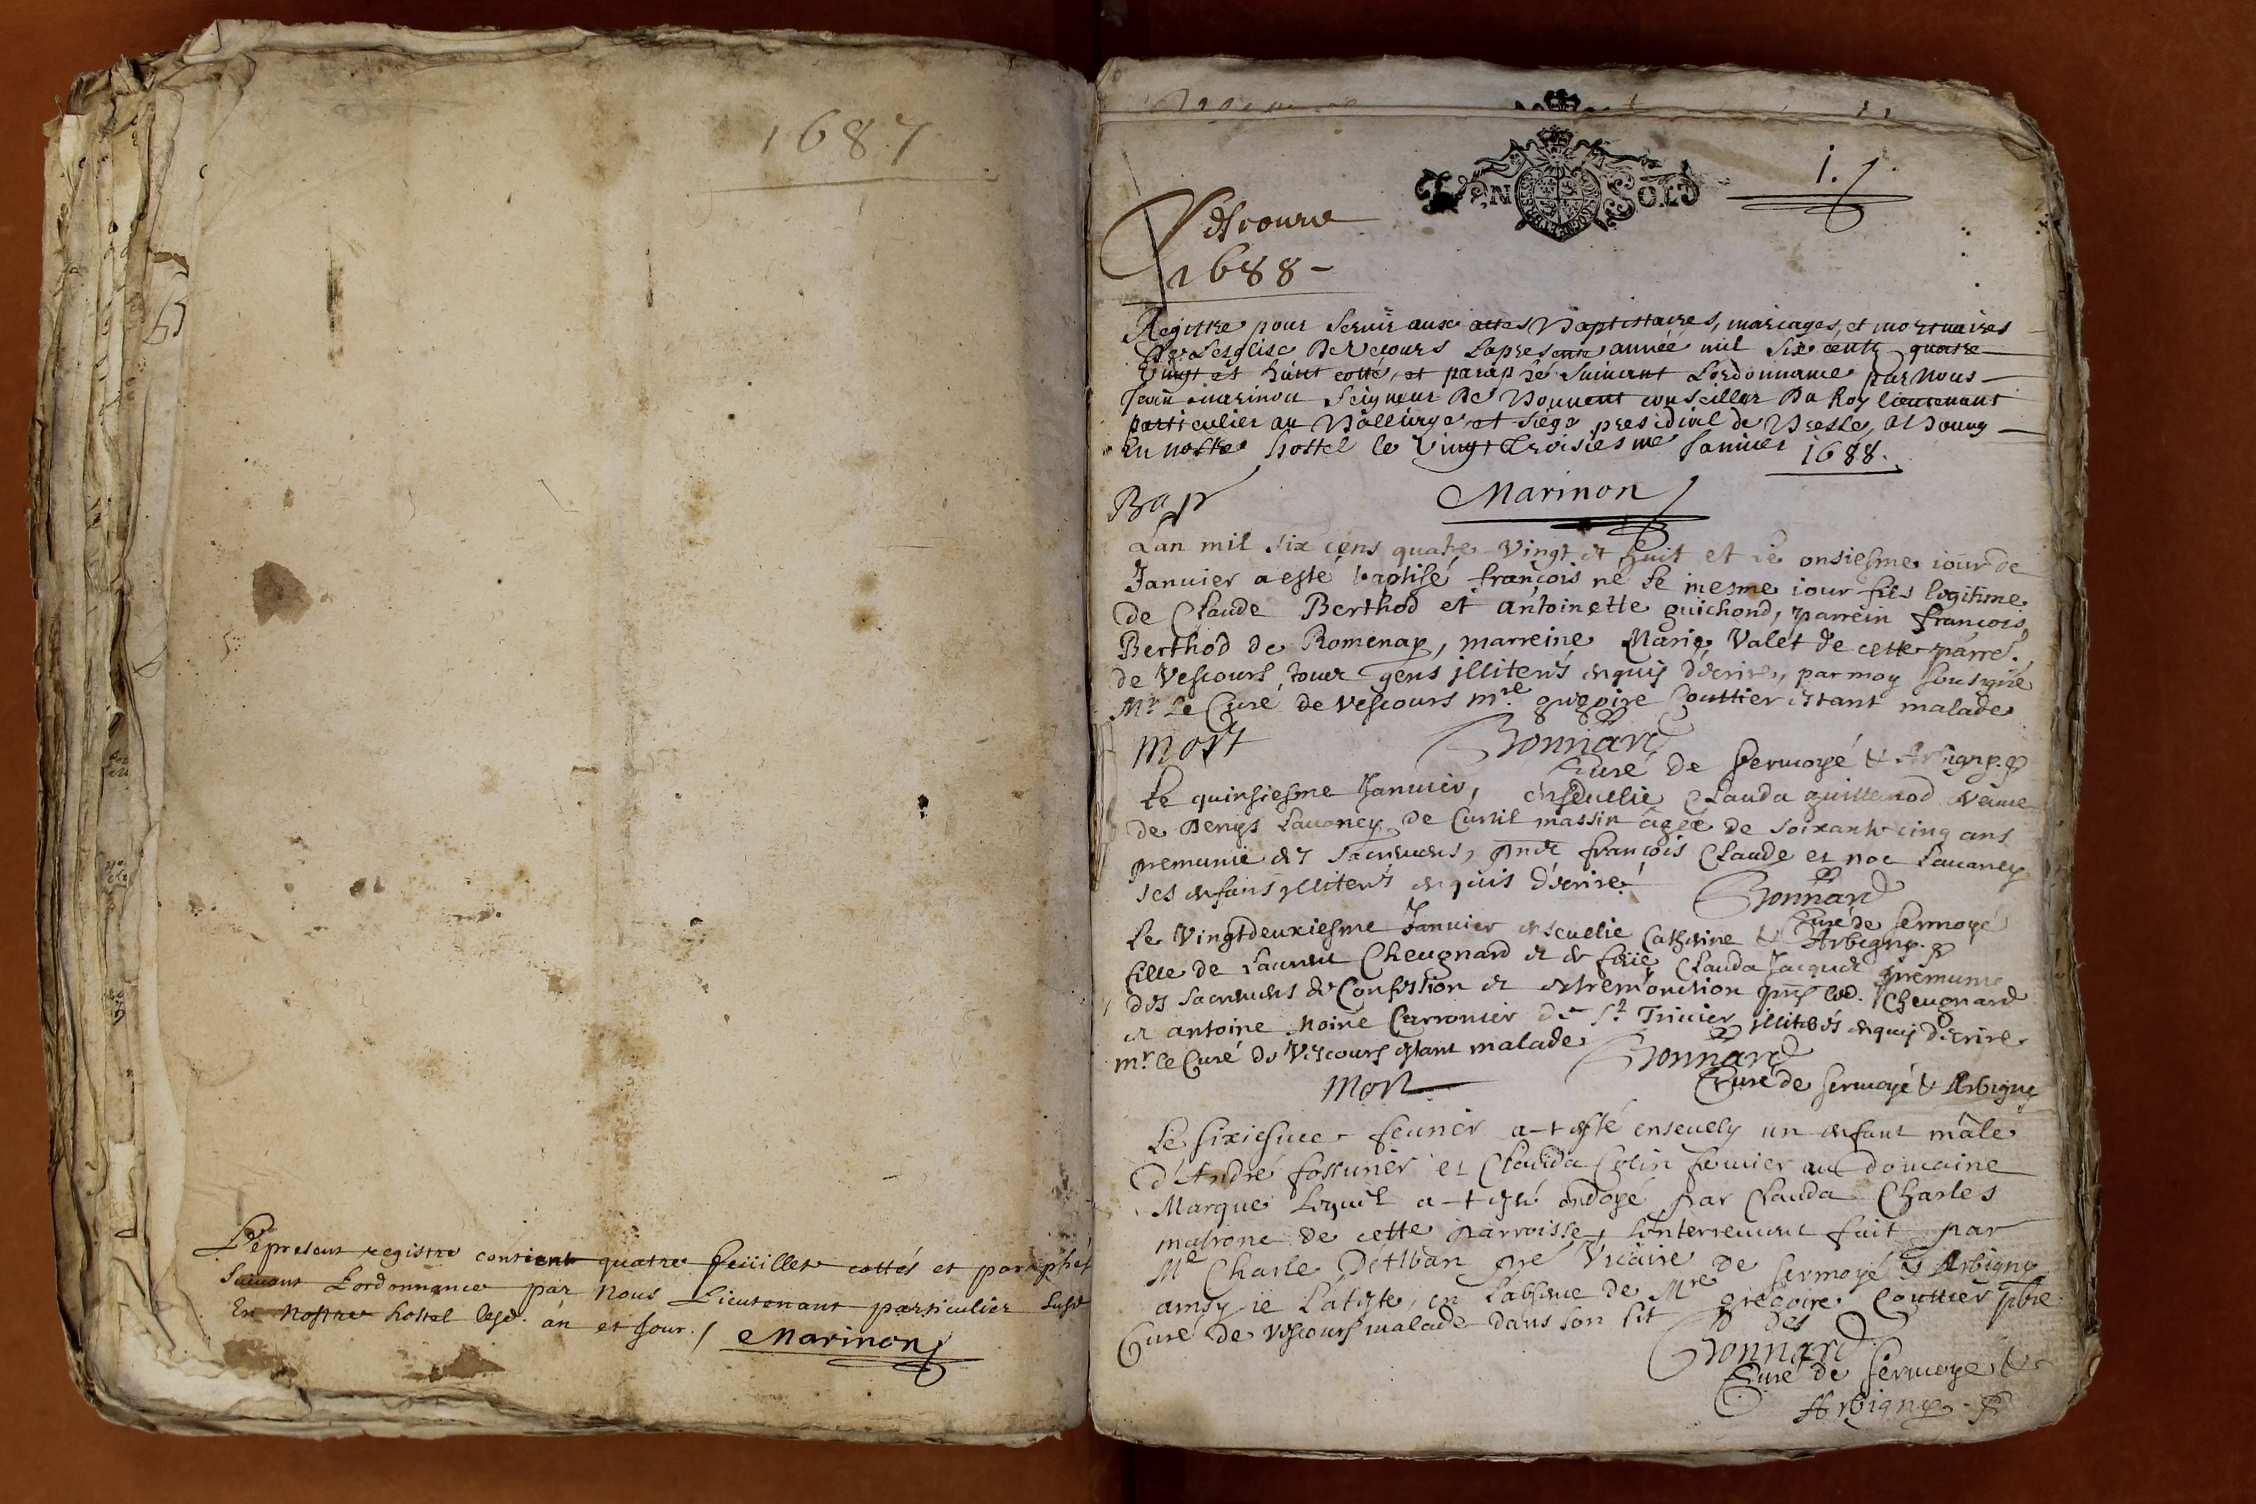 1687
Le present registre contient quatre feüillets cottés et paraphés
suivant Lordonnance par Nous Lieutenant particulier susd
En Nostre hostel lesd. an et jour.
Marinon
GEN SOLS
1.
Vescours
1688
Registre pour servir aux actes Baptistaires, mariages, et mortuaires
De Lesglise De Vecours La presente année mil six cents quatre
Vingt et huict cotté, et paraphé suivant Lordonnance par Nous
Jean marinon Seigneur De conseiller Du Roy lieutenant
particulier au Balliage et siege presidial de Bresse, A Bourg
En nostre hostel le Vingt troisiesme Janvier 1688.
Marinon
Bap
Lan mil six cens quatre Vingt et huit et le onsiesme iour de
Januier a esté baptisé françois né le mesme iour fils legitime
de Claude Berthod et antoinette guichond, parrein françois
Berthod de Romenay, marreine Marie Valet de cette parre.
de Vescours, tous gens illiterés enquis d'écrire, par moy sousigné
Mr Le Curé de Vescours mre gregoire Couttier estant malade
mort
Bonnard
Curé de sermoyé & Arbigny
Le quinsiesme Januier, enseuelie Clauda guillemod veuue
de Denys Lauancy de Curtil massin agée de soixante cinq ans
premunie des sacremens, françois Claude et noe Lauancy
ses enfans illiterés enquis d'écrire
Bonnard
Curé de sermoyé
& Arbigny
Le Vingtdeuxiesme Januier enseuelie Catherine
fille de Laurent Cheugnard et de feüe Clauda Jacquet premunie
des sacremens de Confession et extremonction led. Cheugnard
et antoine Moine Carronier de St Triuier illiterés enquis d'écrire
mr le Curé de Vescours estant malade
Bonnard
Curé de sermoyé & Arbigny
Mort
Le sixiesme feurier a-t esté enseuely un enfant mâle
d'André et Clauda Colin au domaine
Marque lequel a-t esté ondoyé par Clauda Charles
matrone de cette parroisse, Lenterrement fait par
Me Charle pre Vicaire de sermoyé & Arbigny
ainsy ie L'atteste, en L'absence de Mre gregoire Couttier pbre
Curé de Vescours malade dans son lit
Bonnard
Curé de sermoyé &
Arbigny